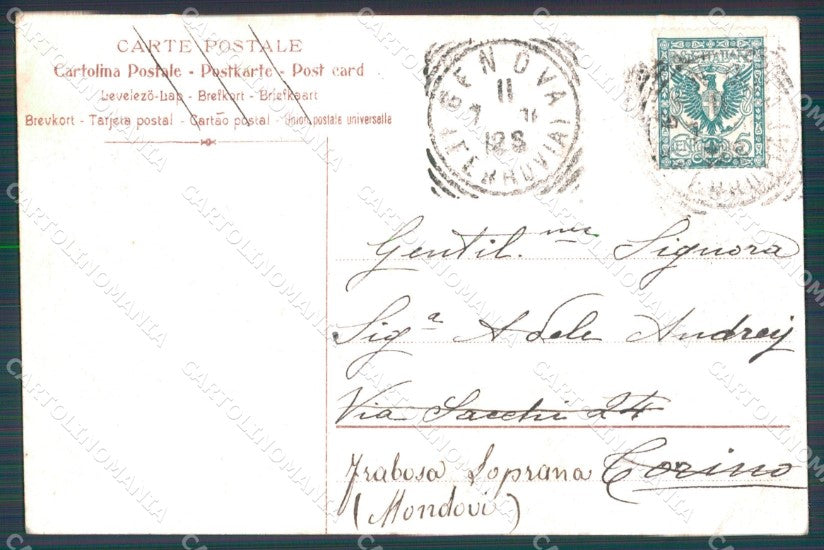 CARTE POSTALE
Cartolina Postale - Postkarte - Post card
Levelező-Lap - Brefkort - Briefkaart
Brevkort - Tarjeta postal - Cartão postal - Union postale universelle
GENOVA
11
128
(FERROVIA)
POSTE ITALIANE
5
Gentil.me Signora
Sig.a Adele Andreij
Via Sacchi 24
Frabosa Soprana Torino
(Mondovì)
CARTOLINOMANIA